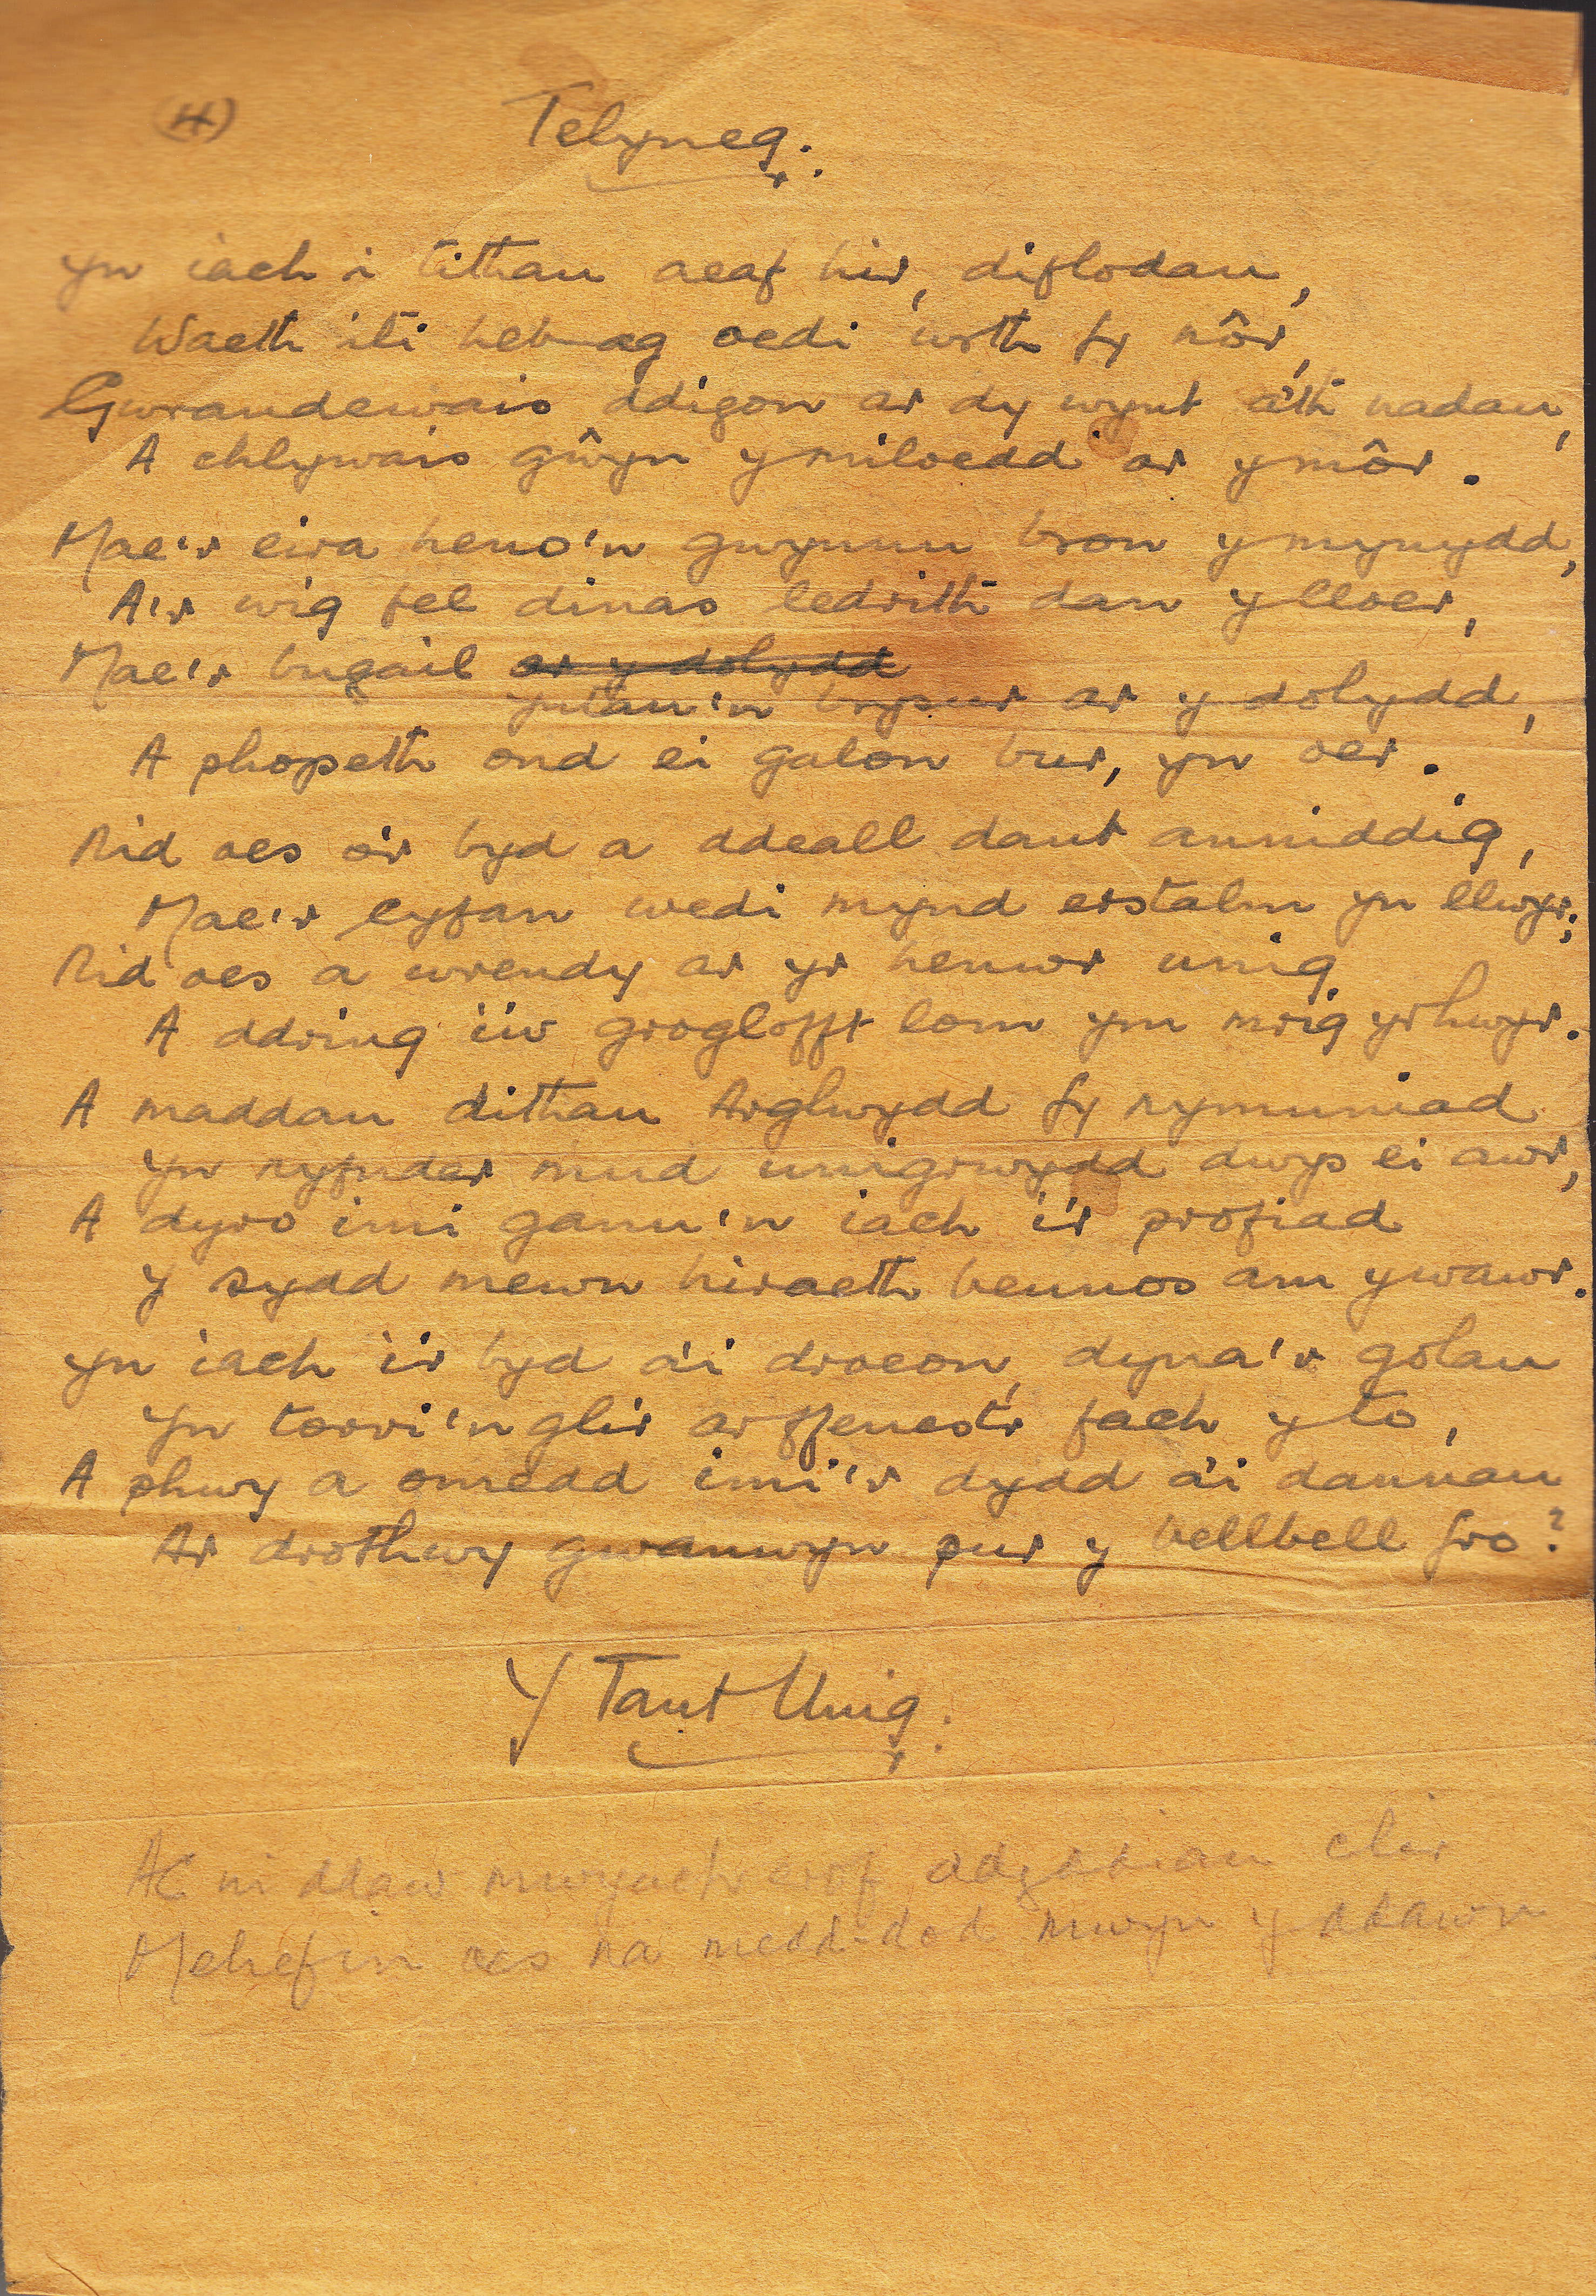 (4) Telyneg.
Yn iach i tithau aeaf hir, diflodau,
Waeth iti heb ag oedi wrth fy nôr,
Gwrandewais ddigon ar dy wynt a'th nadau,
A chlywais gŵyn y miloedd ar y môr.
Mae'r eira heno'n gwynnu bron y mynydd,
A'r wig fel dinas ledrith dan y lloer,
Mae'r bugail ar y dolydd
yntau'n brysur ar y dolydd,
A phopeth ond ei galon bur, yn oer.
Nid oes o'r byd a ddeall dant anniddig,
Mae'r cyfan wedi mynd erstalm yn llwyr;
Nid oes a wrendy ar yr henwr unig
A ddring i'w groglofft lom ym mrig yr hwyr.
A maddau dithau Arglwydd fy nymuniad
Yn nyfnder mud unigrwydd dwys ei awr,
A dyro imi ganu'n iach i'r profiad
Y sydd mewn hiraeth beunos am y wawr.
Yn iach i'r byd a'i droeon, dyna'r golau
Yn torri'n glir ar ffenestr fach y to,
A phwy a omedd imi'r dydd a'i dannau
Ar drothwy gwanwyn pur y bellbell fro?
Y Tant Unig.
Ac ni ddaw mwyach erof clir
Mehefin oes na medd-dod mwyn y ddawn